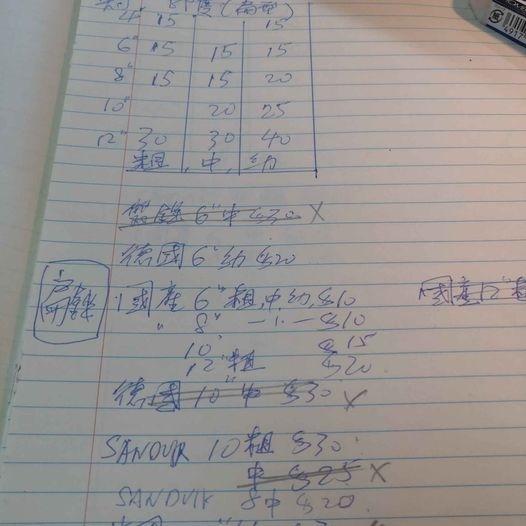 4" 15 15
6" 15 15 15
8" 15 15 20
10" 20 25
12" 30 30 40
粗 中 幼
6"中 @30 X
德國 6"幼 @20
國產 6"粗,中幼,@10
" 8" @10
10" @15
12"粗 @20
德國 10"中 @30 X
SANDVIK 10粗 @30
中 @25 X
SANDVIK 8中 @20
國產12"粗